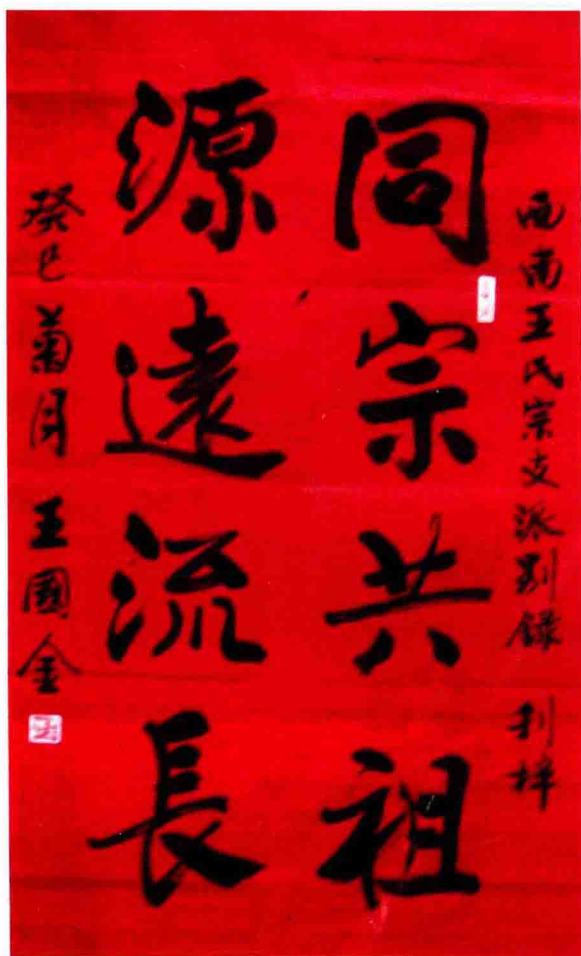 西南王氏宗支派别録 刊梓
同宗共祖
源遠流長
癸巳菊月 王國金